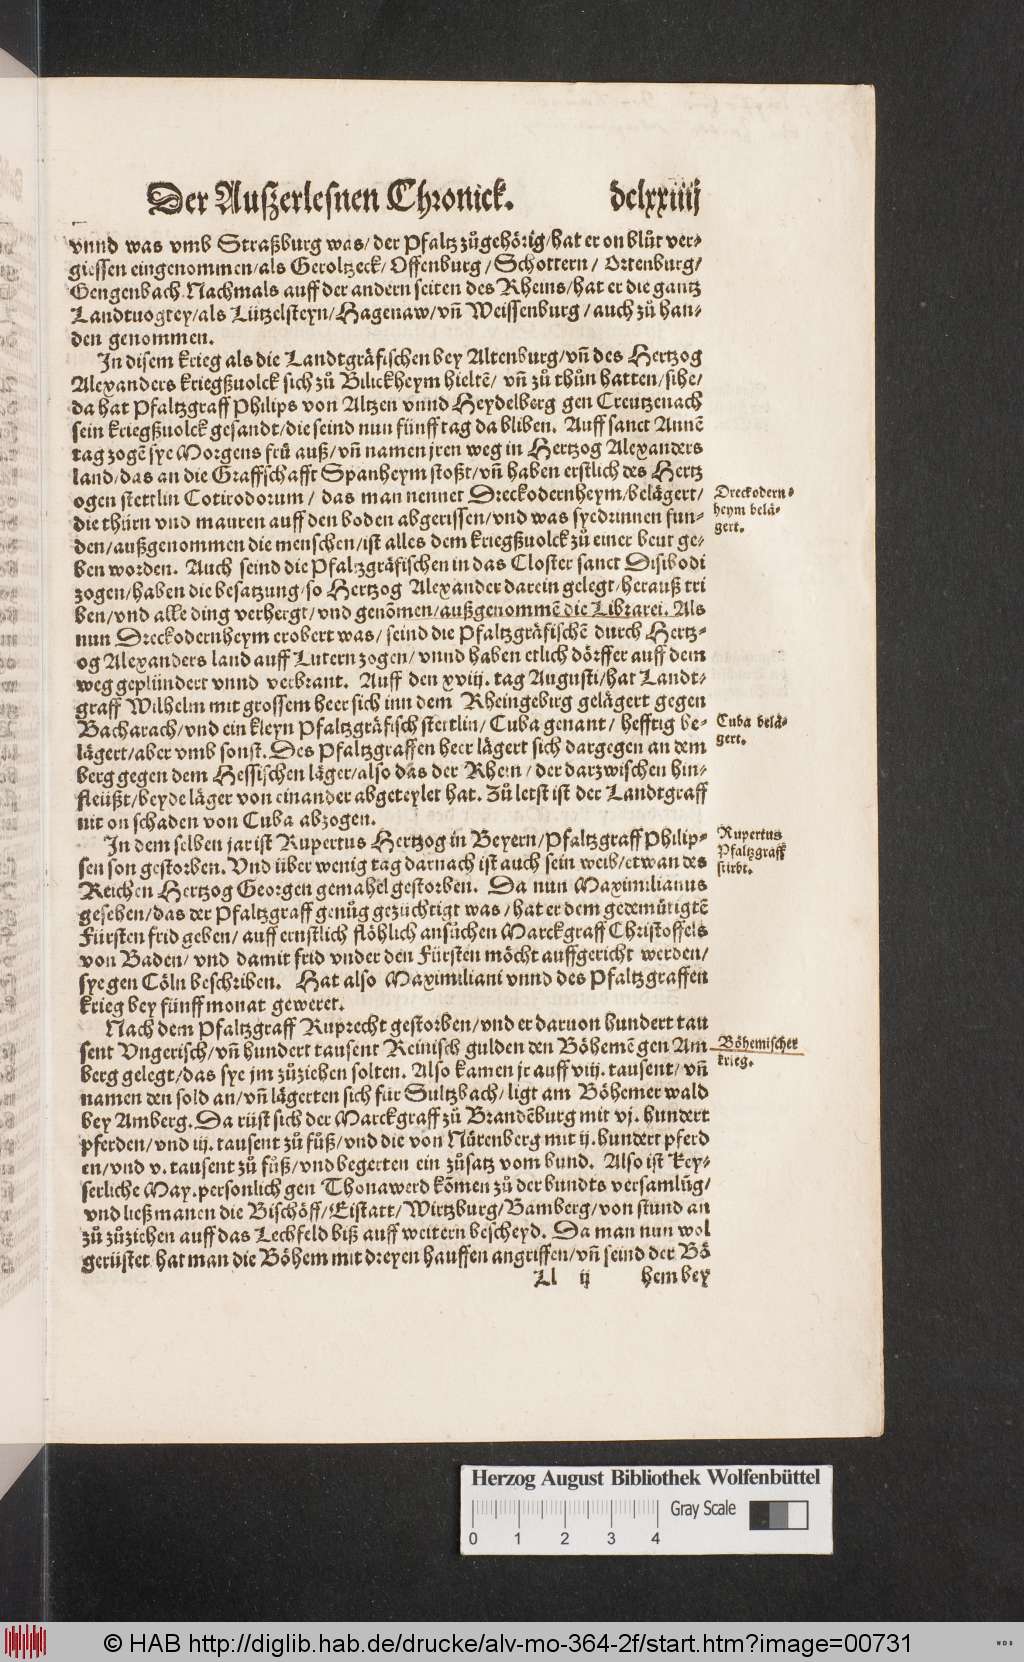 Der Außerlesnen Chronick. dclxxiiij
vnnd was vmb Straßburg was/ der Pfaltz zůgehörig/ hat er on blůt ver-
giessen eingenommen/ als Geroltzeck/ Offenburg/ Schottern/ Ortenburg/
Gengenbach. Nachmals auff der andern seiten des Rheins/ hat er die gantz
Landtuogtey/ als Lützelsteyn/ Hagenaw/ vñ Weissenburg/ auch zů han-
den genommen.
In disem krieg als die Landtgräfischen bey Altenburg/ vñ des Hertzog
Alexanders kriegßuolck sich zů Bilickheym hieltē/ vñ zů thůn hatten/ sihe/
da hat Pfaltzgraff Philips von Altzen vnnd Heydelberg gen Creutzenach
sein kriegßuolck gesandt/ die seind nun fünff tag da bliben. Auff sanct Annē
tag zogē sye Morgens frů auß/ vñ namen jren weg in Hertzog Alexanders
land/ das an die Graffschafft Spanheym stoßt/ vñ haben erstlich des Hertz
ogen stettlin Cotirodorum/ das man nennet Dreckodernheym/ belägert/
die thürn vnd mauren auff den boden abgerissen/ vnd was sye drinnen fun-
den/ außgenommen die menschen/ ist alles dem kriegßuolck zů einer beut ge-
ben worden. Auch seind die Pfaltzgräfischen in das Closter sanct Disibodi
zogen/ haben die besatzung/ so Hertzog Alexander darein gelegt/ herauß tri
ben/ vnd alle ding verhergt/ vnd genōmen/ außgenommē die Librarei. Als
nun Dreckodernheym erobert was/ seind die Pfaltzgräfischē durch Hertz-
og Alexanders land auff Lutern zogen/ vnnd haben etlich dörffer auff dem
weg geplündert vnnd verbrant. Auff den xviij. tag Augusti/ hat Landt-
graff Wilhelm mit grossem heer sich inn dem Rheingebirg gelägert gegen
Bacharach/ vnd ein kleyn Pfaltzgräfisch stettlin/ Cuba genant/ hefftig be-
lägert/ aber vmb sonst. Des Pfaltzgraffen heer lägert sich dargegen an dem
berg gegen dem Hessischen läger/ also das der Rhein/ der darzwischen hin-
fleüßt/ beyde läger von einander abgeteylet hat. Zů letst ist der Landtgraff
nit on schaden von Cuba abzogen.
In dem selben jar ist Rupertus Hertzog in Beyern/ Pfaltzgraff Philip-
sen son gestorben. Vnd über wenig tag darnach ist auch sein weib/ etwan des
Reichen Hertzog Georgen gemahel gestorben. Da nun Maximilianus
gesehen/ das der Pfaltzgraff genůg gezüchtigt was/ hat er dem gedemütigtē
Fürsten frid geben/ auff ernstlich flöhlich ansůchen Marckgraff Christoffels
von Baden/ vnd damit frid vnder den Fürsten möcht auffgericht werden/
sye gen Cöln beschriben. Hat also Maximiliani vnnd des Pfaltzgraffen
krieg bey fünff monat geweret.
Nach dem Pfaltzgraff Ruprecht gestorben/ vnd er daruon hundert tau
sent Vngerisch/ vñ hundert tausent Reinisch gulden den Böhemē gen Am
berg gelegt/ das sye jm zůziehen solten. Also kamen jr auff viij. tausent/ vñ
namen den sold an/ vñ lägerten sich für Sultzbach/ ligt am Böhemer wald
bey Amberg. Da rüst sich der Marckgraff zů Brandēburg mit vj. hundert
pferden/ vnd iij. tausent zů fůß/ vnd die von Nürenberg mit ij. hundert pferd
en/ vnd v. tausent zů fůß/ vnd begerten ein zůsatz vom bund. Also ist Key-
serliche May. personlich gen Thonawerd kōmen zů der bundts versamlūg/
vnd ließ manen die Bischöff/ Eistatt/ Wirtzburg/ Bamberg/ von stund an
zů zůziehen auff das Lechfeld biß auff weitern bescheyd. Da man nun wol
gerüstet hat man die Böhem mit dreyen hauffen angriffen/ vñ seind der Bö
Ll ij hem bey
Dreckodern-
heym belä-
gert.
Cuba belä-
gert.
Rupertus
Pfaltzgraff
stirbt.
Böhemischer
krieg.
Herzog August Bibliothek Wolfenbüttel
Gray Scale
0 1 2 3 4
© HAB http://diglib.hab.de/drucke/alv-mo-364-2f/start.htm?image=00731